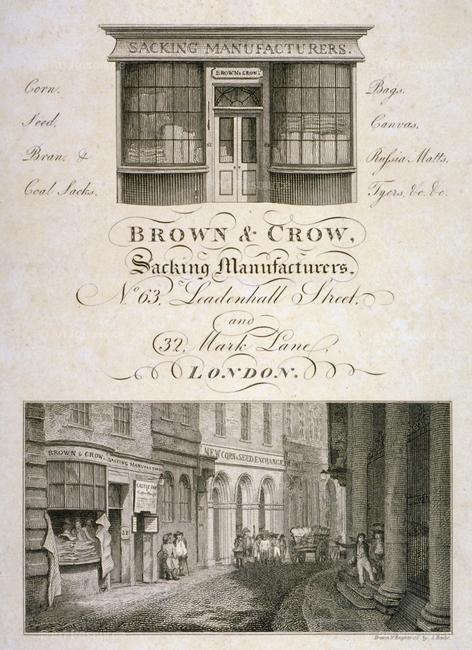 SACKING MANUFACTURERS.
BROWN & CROW.
Corn.
Seed.
Bran &
Coal Sacks.
Bags.
Canvas.
Russia Matts.
Tyers, &c. &c.
BROWN & CROW,
Sacking Manufacturers,
No. 63, Leadenhall Street,
and
32, Mark Lane,
LONDON.
BROWN & CROW, SACKING MANUFACTURERS
NEW CORN & SEED EXCHANGE
32